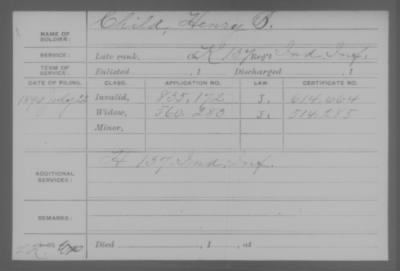 NAME OF SOLDIER: Child, Henry C.
SERVICE: Late rank, K 137 Reg't Ind. Inf.
TERM OF SERVICE: Enlisted , 1 Discharged , 1
DATE OF FILING. CLASS. APPLICATION NO. LAW. CERTIFICATE NO.
Invalid, 835,172 J. 614,664
Widow, 560,283 J. 514,285
Minor,
ADDITIONAL SERVICES: 137 Ind. Inf.
REMARKS:
Died , 1 , at